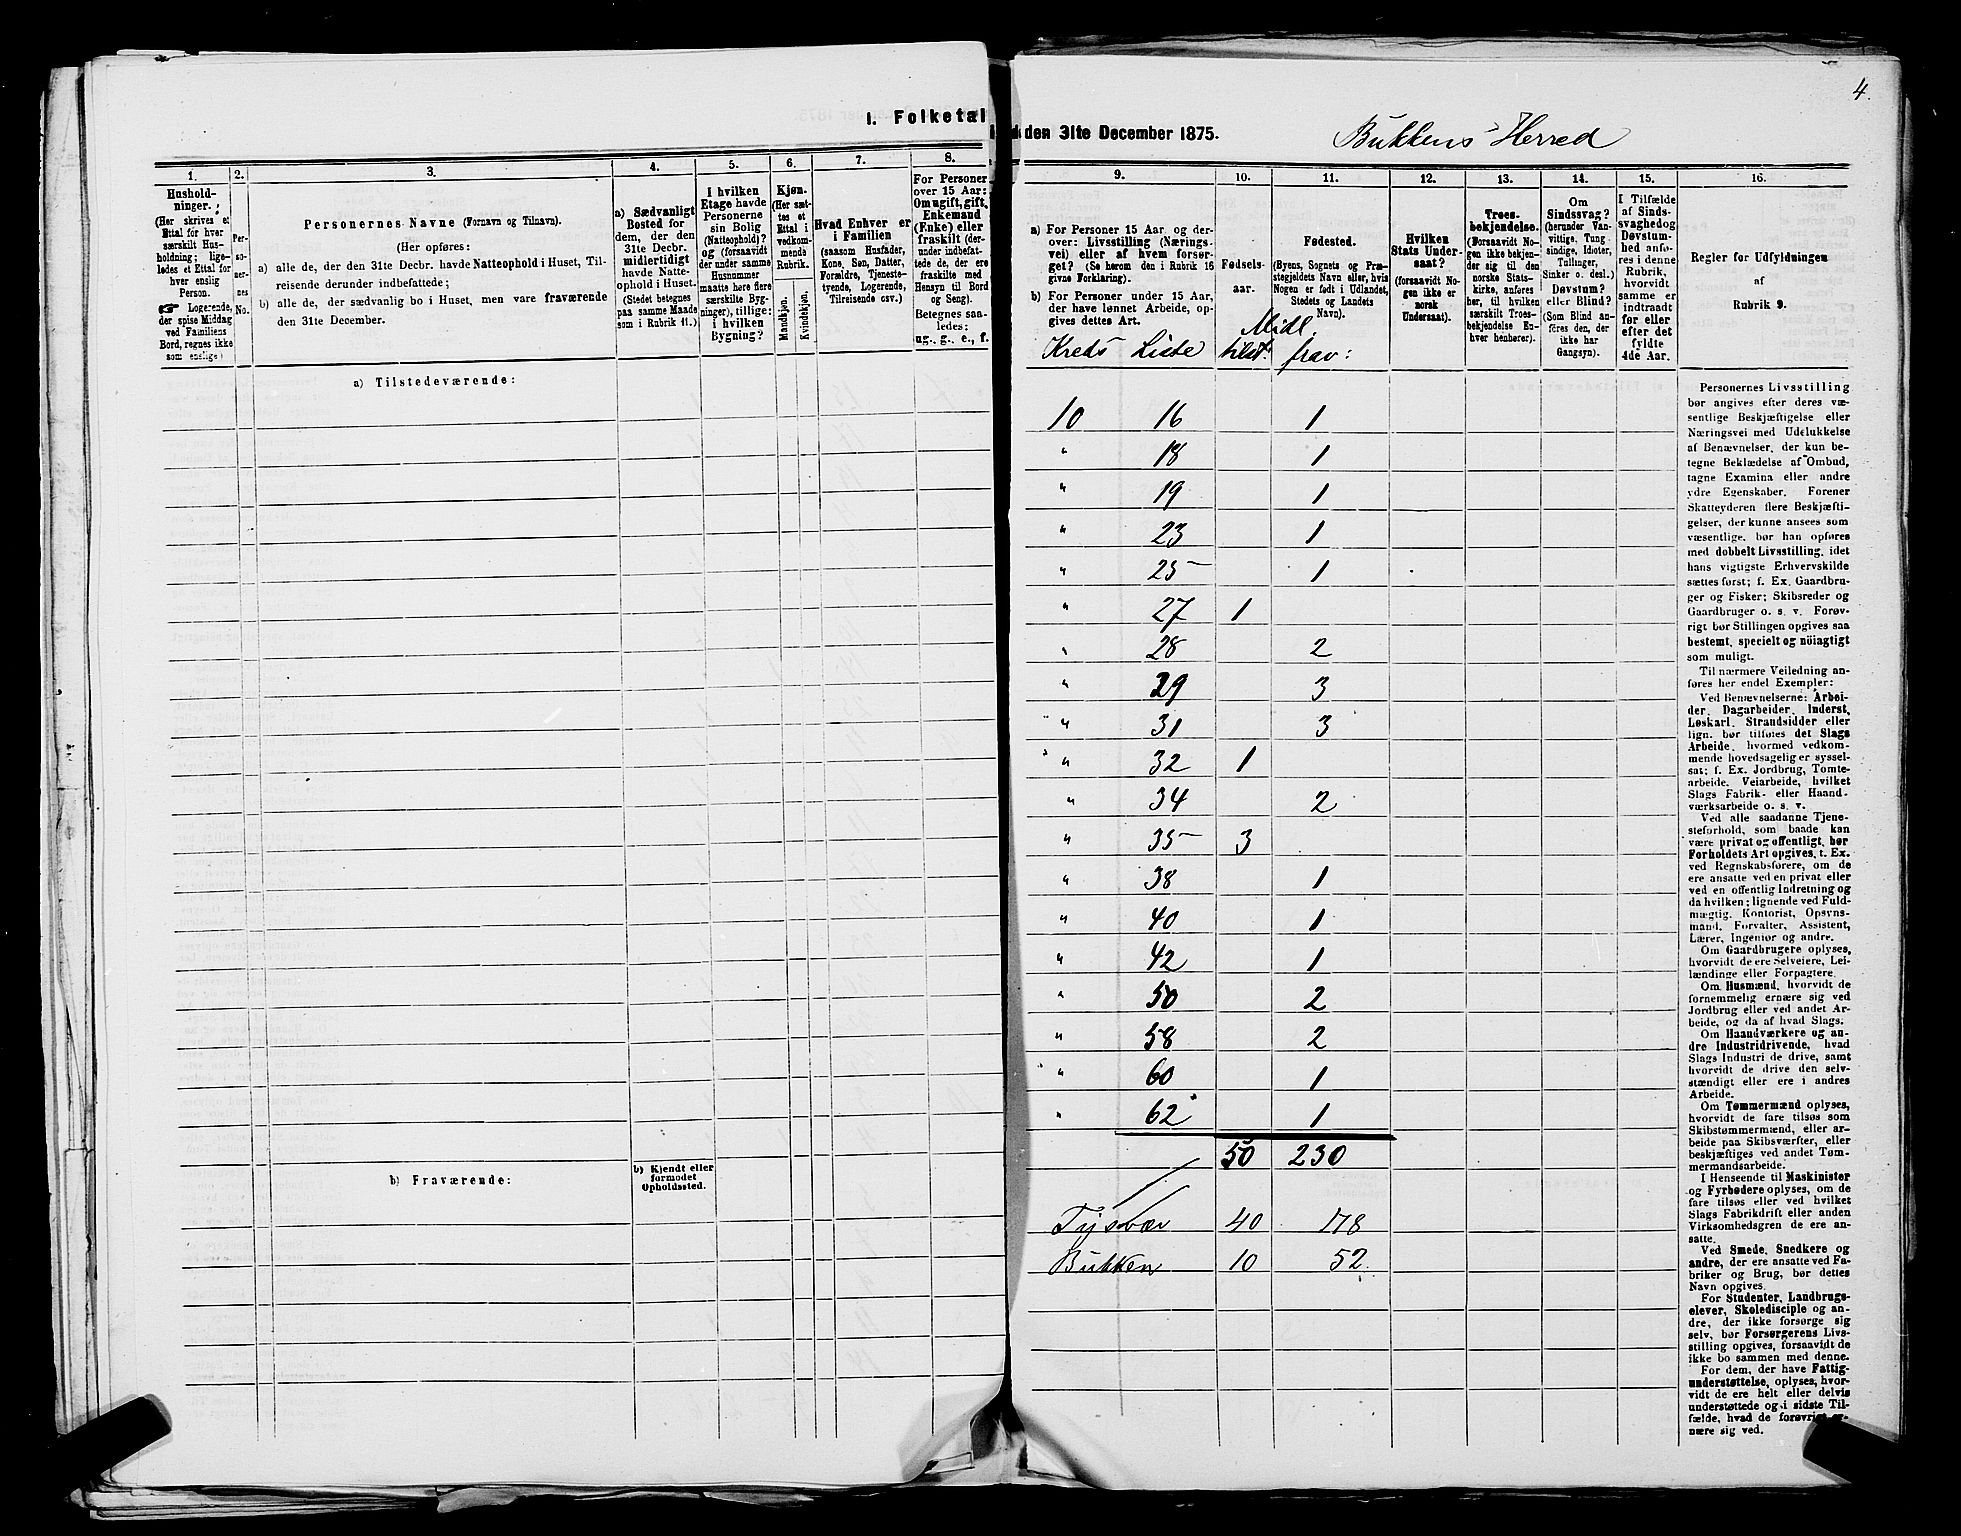 4.
1. Folketal
den 31te December 1875.
Bukkens Herred
1.
2.
3.
4.
5.
6.
7.
8.
Hushold-
ninger.
(Her skrives et
Ettal for hver
særskilt Hus-
holdning; lige-
ledes et Ettal for
hver enslig
Person.
☞ Logerende,
der spise Middag
ved Familiens
Bord, regnes ikke
som enslige)
Per-
so-
ner-
nes
No.
Personernes Navne (Fornavn og Tilnavn).
(Her opføres:
a) alle de, der den 31te Decbr. havde Natteophold i Huset, Til-
reisende derunder indbefattede;
b) alle de, der sædvanlig bo i Huset, men vare fraværende
den 31te December.
a) Sædvanligt
Bosted for
dem, der den
31te Decbr.
midlertidigt
havde Natte-
ophold i Huset.
(Stedet betegnes
paa samme Maade
som i Rubrik 11.)
I hvilken
Etage havde
Personerne
sin Bolig
(Natteophold)?
og (forsaavidt
der under samme
Husnummer
maatte høre flere
særskilte Byg-
ninger), tillige:
i hvilken
Bygning?
Kjøn.
(Her sæt-
tes et
Ettal i
vedkom-
mende
Rubrik.
Mandkjøn.
Kvindekjøn.
Hvad Enhver er
i Familien
(saasom Husfader,
Kone, Søn, Datter,
Forældre, Tjeneste-
tyende, Logerende,
Tilreisende osv.)
For Personer
over 15 Aar:
Om ugift, gift,
Enkemand
(Enke) eller
fraskilt (der-
under indbefat-
tede de, der ere
fraskilte med
Hensyn til Bord
og Seng).
Betegnes saa-
ledes:
ug., g., e., f.
a) Tilstedeværende:
b) Fraværende:
b) Kjendt eller
formodet
Opholdssted.
9.
10.
11.
12.
13.
14.
15.
16.
a) For Personer 15 Aar og der-
over: Livsstilling (Nærings-
vei) eller af hvem forsør-
get? (Se herom den i Rubrik 16
givne Forklaring).
b) For Personer under 15 Aar,
der have lønnet Arbeide, op-
gives dettes Art.
Fødsels-
aar.
Fødested.
(Byens, Sognets og Præ-
stegjeldets Navn eller, hvis
Nogen er født i Udlandet,
Stedets og Landets
Navn).
Hvilken
Stats Under-
saat?
(forsaavidt No-
gen ikke er
norsk
Undersaat).
Troes-
bekjendelse.
(Forsaavidt No-
gen ikke bekjen-
der sig til den
norske Stats-
kirke, anføres
her, til hvilken
særskilt Troes-
bekjendelse En-
hver henhører).
Om
Sindssvag?
(herunder Van-
vittige, Tung-
sindige, Idioter,
Tullinger,
Sinker o. desl.)
Døvstum?
eller Blind?
(Som Blind an-
føres den, der
ikke har
Gangsyn).
I Tilfælde
af Sinds-
svaghed og
Døvstum-
hed anfø-
res i denne
Rubrik,
hvorvidt
samme er
indtraadt
før eller
efter det
fyldte
4de Aar.
Regler for Udfyldningen
af
Rubrik 9.
Midl.
Kreds Liste tilst. frav:
10 16 1
" 18 1
" 19 1
" 23 1
" 25 1
" 27 1
" 28 2
" 29 3
" 31 3
" 32 1
" 34 2
" 35 3
" 38 1
" 40 1
" 42 1
" 50 2
" 58 2
" 60 1
" 62 1
50 230
Tysvær 40 178
Bukken 10 52
Personernes Livsstilling
bør angives efter deres væ-
sentlige Beskjæftigelse eller
Næringsvei med Udelukkelse
af Benævnelser, der kun be-
tegne Beklædelse af Ombud,
tagne Examina eller andre
ydre Egenskaber. Forener
Skatteyderen flere Beskjæfti-
gelser, der kunne ansees som
væsentlige, bør han opføres
med dobbelt Livsstilling, idet
hans vigtigste Erhvervskilde
sættes først; f. Ex. Gaardbru-
ger og Fisker; Skibsreder og
Gaardbruger o. s. v. Forøv-
rigt bør Stillingen opgives saa
bestemt, specielt og nøiagtigt
som muligt.
Til nærmere Veiledning an-
føres her endel Exempler:
Ved Benævnelserne: Arbei-
der, Dagarbeider, Inderst,
Løskarl, Strandsidder eller
lign. bør tilføies det Slags
Arbeide, hvormed vedkom-
mende hovedsagelig er syssel-
sat; f. Ex. Jordbrug, Tomte-
arbeide, Veiarbeide, hvilket
Slags Fabrik- eller Haand-
værksarbeide o. s. v.
Ved alle saadanne Tjene-
steforhold, som baade kan
være privat og offentligt, bør
Forholdets Art opgives, t. Ex.
ved Regnskabsførere, om de
ere ansatte ved en privat eller
ved en offentlig Indretning og
da hvilken; lignende ved Fuld-
mægtig, Kontorist, Opsyns-
mand, Forvalter, Assistent,
Lærer, Ingeniør og andre.
Om Gaardbrugere oplyses,
hvorvidt de ere Selveiere, Lei-
lændinge eller Forpagtere.
Om Husmænd, hvorvidt de
fornemmelig ernære sig ved
Jordbrug eller ved andet Ar-
beide, og da af hvad Slags.
Om Haandværkere og an-
dre Industridrivende, hvad
Slags Industri de drive, samt
hvorvidt de drive den selv-
stændigt eller ere i andres
Arbeide.
Om Tømmermænd oplyses,
hvorvidt de fare tilsøs som
Skibstømmermænd, eller ar-
beide paa Skibsværfter, eller
beskjæftiges ved andet Tøm-
mermandsarbeide.
I Henseende til Maskinister
og Fyrbødere oplyses, om de
fare tilsøs eller ved hvilket
Slags Fabrikdrift eller anden
Virksomhedsgren de ere an-
satte.
Ved Smede, Snedkere og
andre, der ere ansatte ved Fa-
briker og Brug, bør dettes
Navn opgives.
For Studenter, Landbrugs-
elever, Skoledisciple og an-
dre, der ikke forsørge sig
selv, bør Forsørgerens Livs-
stilling opgives, forsaavidt de
ikke bo sammen med denne.
For dem, der have Fattig-
understøttelse, oplyses, hvor-
vidt de ere helt eller delvis
understøttede og i sidste Til-
fælde, hvad de forøvrigt er-
nære sig ved.